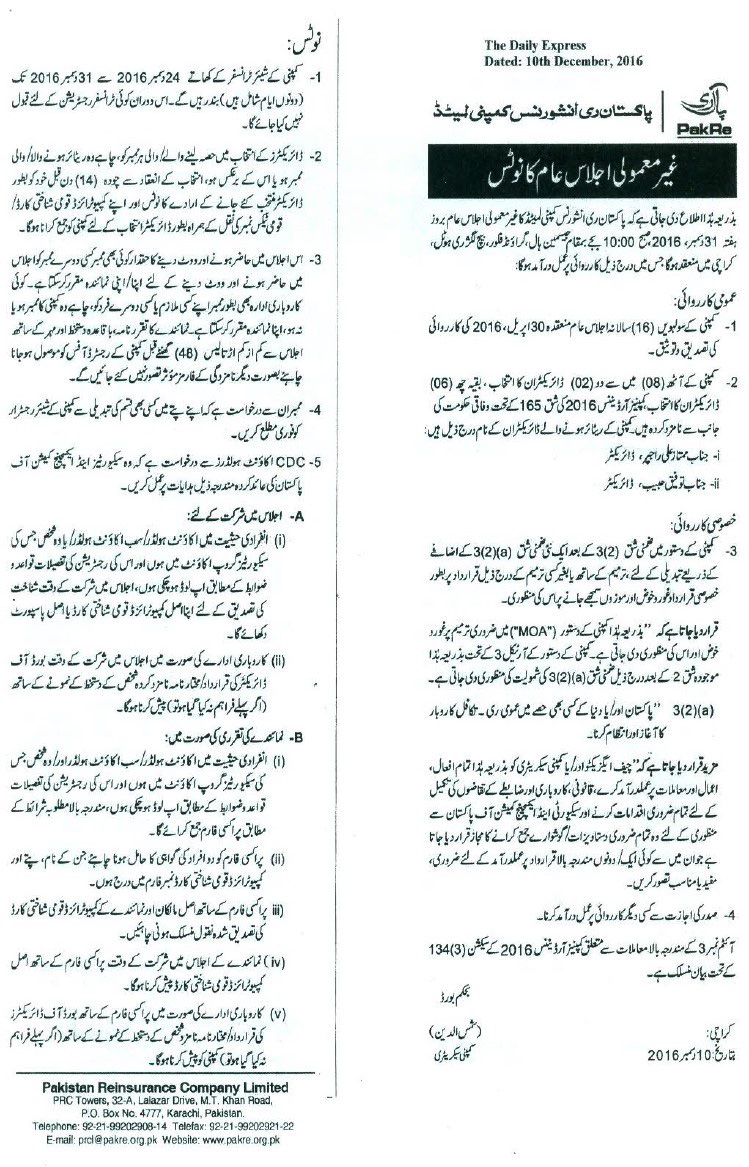 The Daily Express
Dated: 10th December, 2016
پاکستان ری انشورنس کمپنی لمیٹڈ
PakRe
غیر معمولی اجلاس عام کا نوٹس
بذریعہ ہذا اطلاع دی جاتی ہے کہ پاکستان ری انشورنس کمپنی لمیٹڈ کا غیر معمولی اجلاس عام بروز
ہفتہ 31 دسمبر، 2016، صبح 10:00 بجے بمقام جیسمین ہال، گراؤنڈ فلور، بیچ لگژری ہوٹل،
کراچی میں منعقد ہوگا جس میں درج ذیل کارروائی پر عمل درآمد ہوگا:
عمومی کارروائی:
1- کمپنی کے سولہویں (16) سالانہ اجلاس عام منعقدہ 30 اپریل، 2016 کی کارروائی
کی تصدیق و توثیق۔
2- کمپنی کے آٹھ (08) میں سے دو (02) ڈائریکٹران کا انتخاب، بقیہ چھ (06)
ڈائریکٹران کا انتخاب، کمپنیز آرڈیننس 2016 کی شق 165 کے تحت وفاقی حکومت کی
جانب سے نامزد کردہ ہیں۔ کمپنی کے ریٹائر ہونے والے ڈائریکٹران کے نام درج ذیل ہیں:
i- جناب ممتاز علی راجپر، ڈائریکٹر
ii- جناب توفیق حبیب، ڈائریکٹر
خصوصی کارروائی:
3- کمپنی کے دستور میں ضمنی شق 3(2) کے بعد ایک نئی ضمنی شق 3(2)(a) کے اضافے
کے ذریعے تبدیلی کے لئے، ترمیم کے ساتھ یا بغیر کسی ترمیم کے درج ذیل قرارداد پر بطور
خصوصی قرارداد غور و خوض اور موزوں سمجھے جانے پر اس کی منظوری۔
قرار دیا جاتا ہے کہ "بذریعہ ہذا کمپنی کے دستور ("MOA") میں ضروری ترمیم پر غور و
خوض اور اس کی منظوری دی جاتی ہے۔ کمپنی کے دستور کے آرٹیکل 3 کے تحت بذریعہ ہذا
موجودہ شق 2 کے بعد درج ذیل ضمنی شق 3(2)(a) کی شمولیت کی منظوری دی جاتی ہے۔
3(2)(a) "پاکستان اور/یا دنیا کے کسی بھی حصے میں عمومی ری۔ تکافل کاروبار
کا آغاز اور انتظام کرنا۔
مزید قرار دیا جاتا ہے کہ "چیف ایگزیکٹو اور/یا کمپنی سیکریٹری کو بذریعہ ہذا تمام افعال،
اعمال اور معاملات پر عملدرآمد کرے، قانونی، کاروباری اور ضابطے کے تقاضوں کی تکمیل
کے لئے تمام ضروری اقدامات کرنے اور سیکیورٹی اینڈ ایکسچینج کمیشن آف پاکستان سے
منظوری کے لئے وہ تمام ضروری دستاویزات/گوشوارے جمع کرانے کا مجاز قرار دیا جاتا
ہے جو ان میں سے کوئی ایک/دونوں مندرجہ بالا قرارداد پر عملدرآمد کے لئے ضروری،
مفید یا مناسب تصور کریں۔
4- صدر کی اجازت سے کسی دیگر کارروائی پر عمل درآمد کرنا۔
آئٹم نمبر 3 کے مندرجہ بالا معاملات سے متعلق کمپنیز آرڈیننس 2016 کے سیکشن 134(3)
کے تحت بیان منسلک ہے۔
بحکم بورڈ
(شمس الدین)
کمپنی سیکریٹری
کراچی:
بتاریخ: 10 دسمبر 2016
نوٹس:
1- کمپنی کے شیئر ٹرانسفر کے کھاتے 24 دسمبر 2016 سے 31 دسمبر 2016 تک
(دونوں ایام شامل ہیں) بند رہیں گے۔ اس دوران کوئی ٹرانسفر رجسٹریشن کے لئے قبول
نہیں کیا جائے گا۔
2- ڈائریکٹرز کے انتخاب میں حصہ لینے والے/والی ہر ممبر کو، چاہے وہ ریٹائر ہونے والا/والی
ممبر ہو یا اس کے برعکس ہو، انتخاب کے انعقاد سے چودہ (14) دن قبل خود کو بطور
ڈائریکٹر منتخب کئے جانے کے ارادے کا نوٹس اور اپنے کمپیوٹرائزڈ قومی شناختی کارڈ/
قومی ٹیکس نمبر کی نقل کے ہمراہ بطور ڈائریکٹر انتخاب کے لئے کمپنی کو جمع کرانا ہوگا۔
3- اس اجلاس میں حاضر ہونے اور ووٹ دینے کا حقدار کوئی بھی ممبر کسی دوسرے ممبر کو اجلاس
میں حاضر ہونے اور ووٹ دینے کے لئے اپنا/اپنی نمائندہ مقرر کر سکتا ہے۔ کوئی
کاروباری ادارہ بھی بطور ممبر اپنے کسی ملازم یا کسی دوسرے فرد کو، چاہے وہ کمپنی کا ممبر ہو یا
نہ ہو، اپنا نمائندہ مقرر کر سکتا ہے۔ نمائندے کا تقرر نامہ، باقاعدہ دستخط اور مہر کے ساتھ
اجلاس سے کم از کم اڑتالیس (48) گھنٹے قبل کمپنی کے رجسٹرڈ آفس کو موصول ہو جانا
چاہئے بصورت دیگر نامزدگی کے فارمز مؤثر تصور نہیں کئے جائیں گے۔
4- ممبران سے درخواست ہے کہ اپنے پتے میں کسی بھی قسم کی تبدیلی سے کمپنی کے شیئر رجسٹرار
کو فوری مطلع کریں۔
5- CDC اکاؤنٹ ہولڈرز سے درخواست ہے کہ وہ سیکیورٹیز اینڈ ایکسچینج کمیشن آف
پاکستان کی عائد کردہ مندرجہ ذیل ہدایات پر عمل کریں۔
A- اجلاس میں شرکت کے لئے:
(i) انفرادی حیثیت میں اکاؤنٹ ہولڈر/سب اکاؤنٹ ہولڈر/یا وہ شخص جس کی
سیکیورٹیز گروپ اکاؤنٹ میں ہوں اور اس کی رجسٹریشن کی تفصیلات قواعد و
ضوابط کے مطابق اپ لوڈ ہو چکی ہوں، اجلاس میں شرکت کے وقت شناخت
کی تصدیق کے لئے اپنا اصل کمپیوٹرائزڈ قومی شناختی کارڈ یا اصل پاسپورٹ
دکھائے گا۔
(ii) کاروباری ادارے کی صورت میں اجلاس میں شرکت کے وقت بورڈ آف
ڈائریکٹر کی قرارداد/مختار نامہ نامزد کردہ شخص کے دستخط کے نمونے کے ساتھ
(اگر پہلے فراہم نہ کیا گیا ہو تو) پیش کرنا ہوگا۔
B- نمائندے کی تقرری کی صورت میں:
(i) انفرادی حیثیت میں اکاؤنٹ ہولڈر/سب اکاؤنٹ ہولڈر اور/وہ شخص جس
کی سیکیورٹیز گروپ اکاؤنٹ میں ہوں اور اس کی رجسٹریشن کی تفصیلات
قواعد و ضوابط کے مطابق اپ لوڈ ہو چکی ہوں، مندرجہ بالا مطلوبہ شرائط کے
مطابق پراکسی فارم جمع کرائے گا۔
(ii) پراکسی فارم کو دو افراد کی گواہی کا حامل ہونا چاہئے جن کے نام، پتے اور
کمپیوٹرائزڈ قومی شناختی کارڈ نمبر فارم میں درج ہوں۔
iii) پراکسی فارم کے ساتھ اصل مالکان اور نمائندے کے کمپیوٹرائزڈ قومی شناختی کارڈ
کی تصدیق شدہ نقول منسلک ہونی چاہئیں۔
(iv) نمائندے کے اجلاس میں شرکت کے وقت پراکسی فارم کے ساتھ اصل
کمپیوٹرائزڈ قومی شناختی کارڈ پیش کرنا ہوگا۔
(v) کاروباری ادارے کی صورت میں پراکسی فارم کے ساتھ بورڈ آف ڈائریکٹرز
کی قرارداد/مختار نامہ نامزد شخص کے دستخط کے نمونے کے ساتھ (اگر پہلے فراہم
نہ کیا گیا ہو تو) کمپنی کو پیش کرنا ہوگا۔
Pakistan Reinsurance Company Limited
PRC Towers, 32-A, Lalazar Drive, M.T. Khan Road,
P.O. Box No. 4777, Karachi, Pakistan.
Telephone: 92-21-99202908-14 Telefax: 92-21-99202921-22
E-mail: prcl@pakre.org.pk Website: www.pakre.org.pk